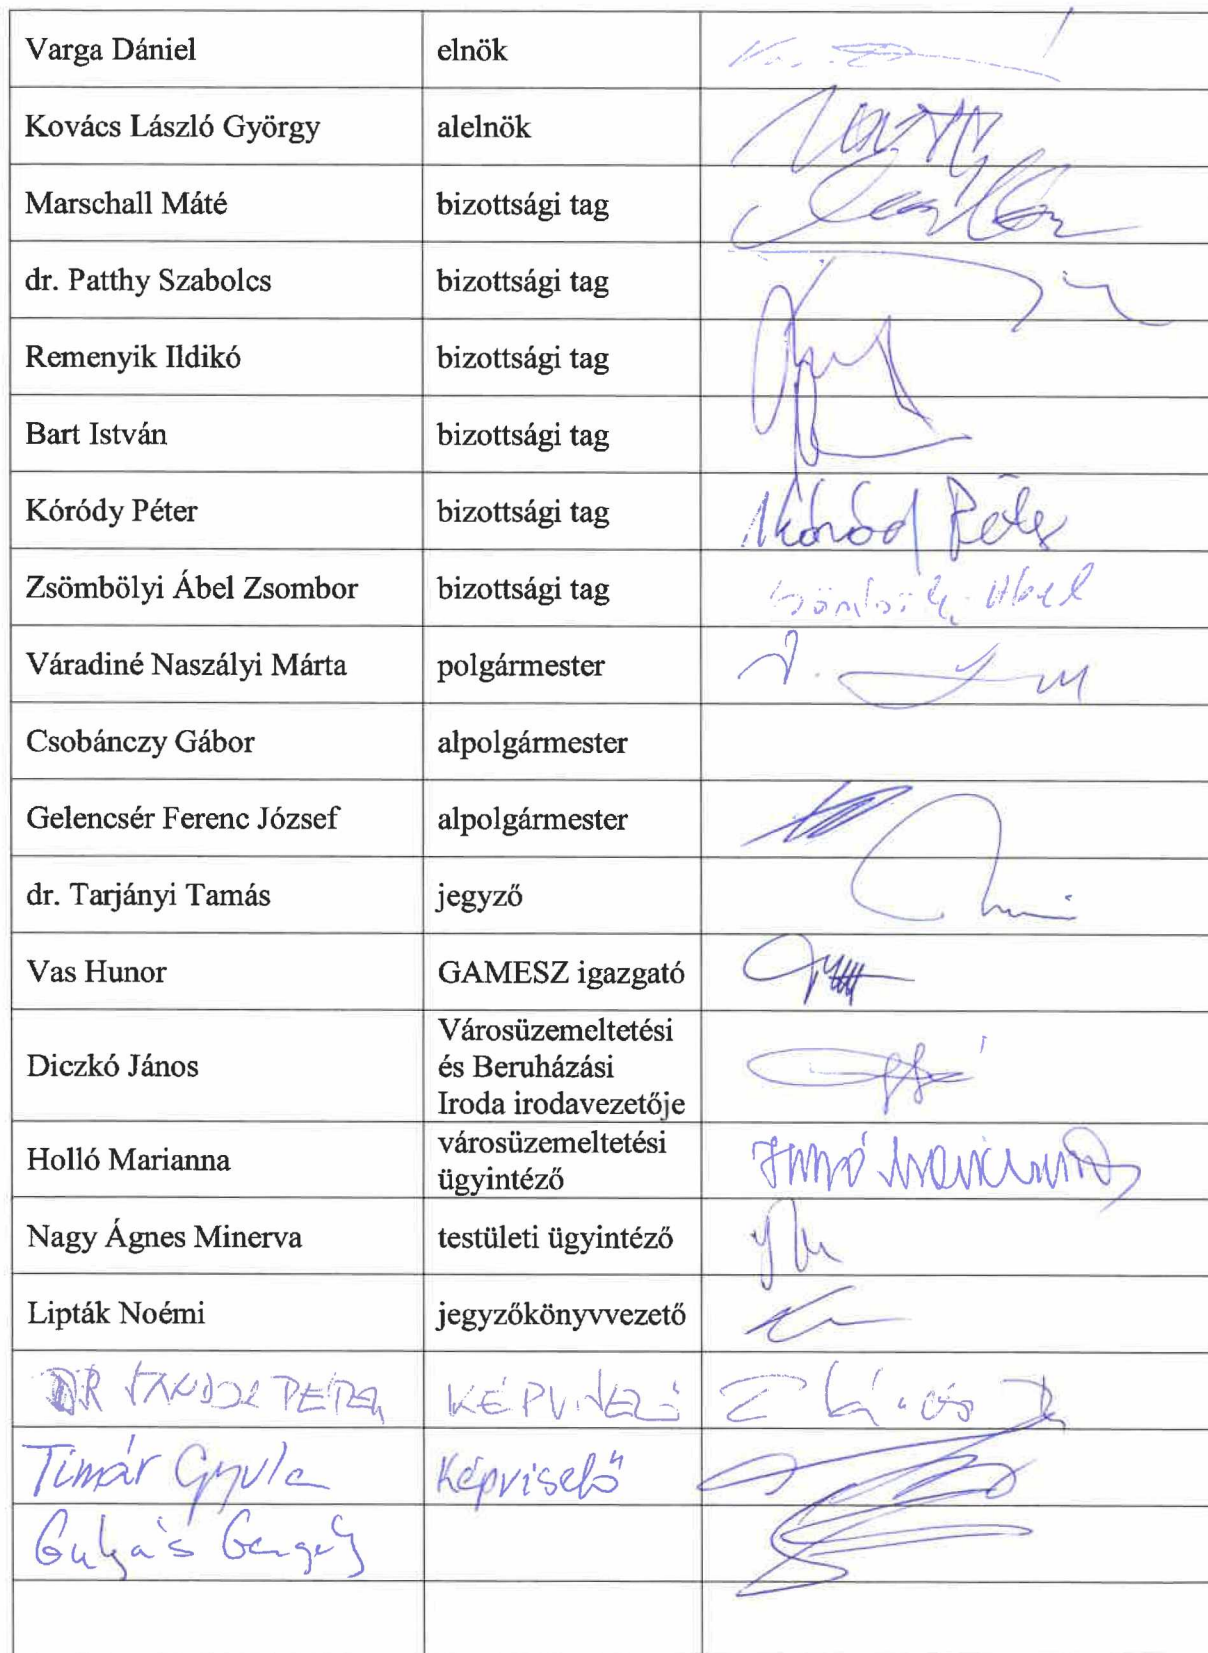 Varga Dániel elnök
Kovács László György alelnök
Marschall Máté bizottsági tag
dr. Patthy Szabolcs bizottsági tag
Remenyik Ildikó bizottsági tag
Bart István bizottsági tag
Kóródy Péter bizottsági tag Kóród Péter
Zsömbölyi Ábel Zsombor bizottsági tag Ábel
Váradiné Naszályi Márta polgármester
Csobánczy Gábor alpolgármester
Gelencsér Ferenc József alpolgármester
dr. Tarjányi Tamás jegyző
Vas Hunor GAMESZ igazgató
Diczkó János Városüzemeltetési
és Beruházási
Iroda irodavezetője
Holló Marianna városüzemeltetési
ügyintéző Holló Marianna
Nagy Ágnes Minerva testületi ügyintéző
Lipták Noémi jegyzőkönyvvezető
DR PÉTER KÉPVISELŐ
Timár Gyula Képviselő
Gulyás Gergely